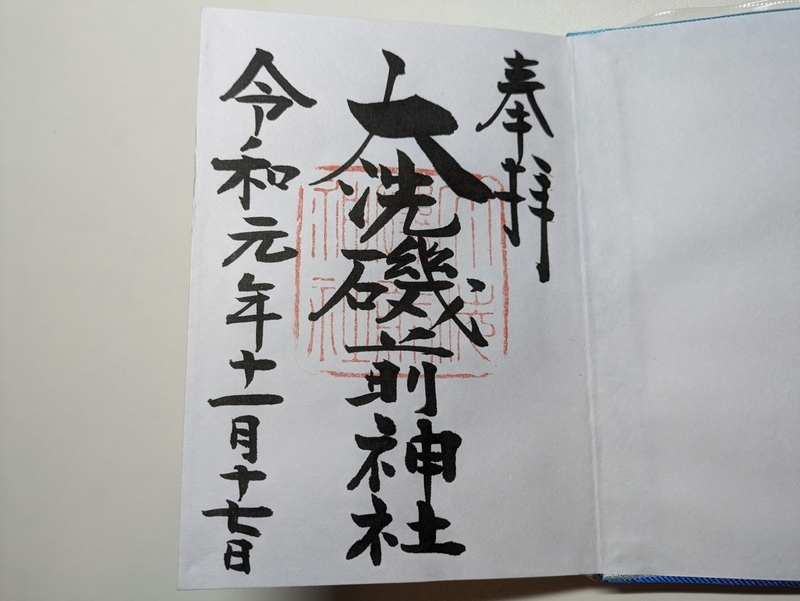 奉拝
大洗磯前神社
令和元年十一月十七日